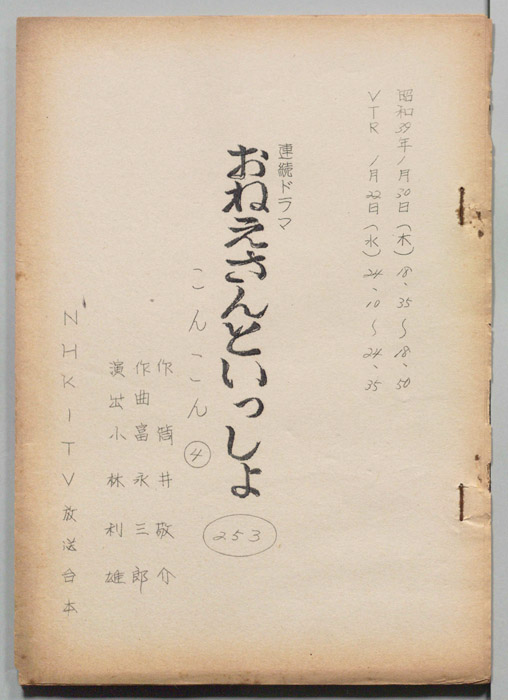 昭和39年1月30日(木)18、35〜18、50
VTR 1月22日(水)24、10〜24、35
連続ドラマ
おねえさんといっしょ
253
こんこん④
作 筒井敬介
作曲 冨永三郎
演出 小林利雄
NHKITV放送台本